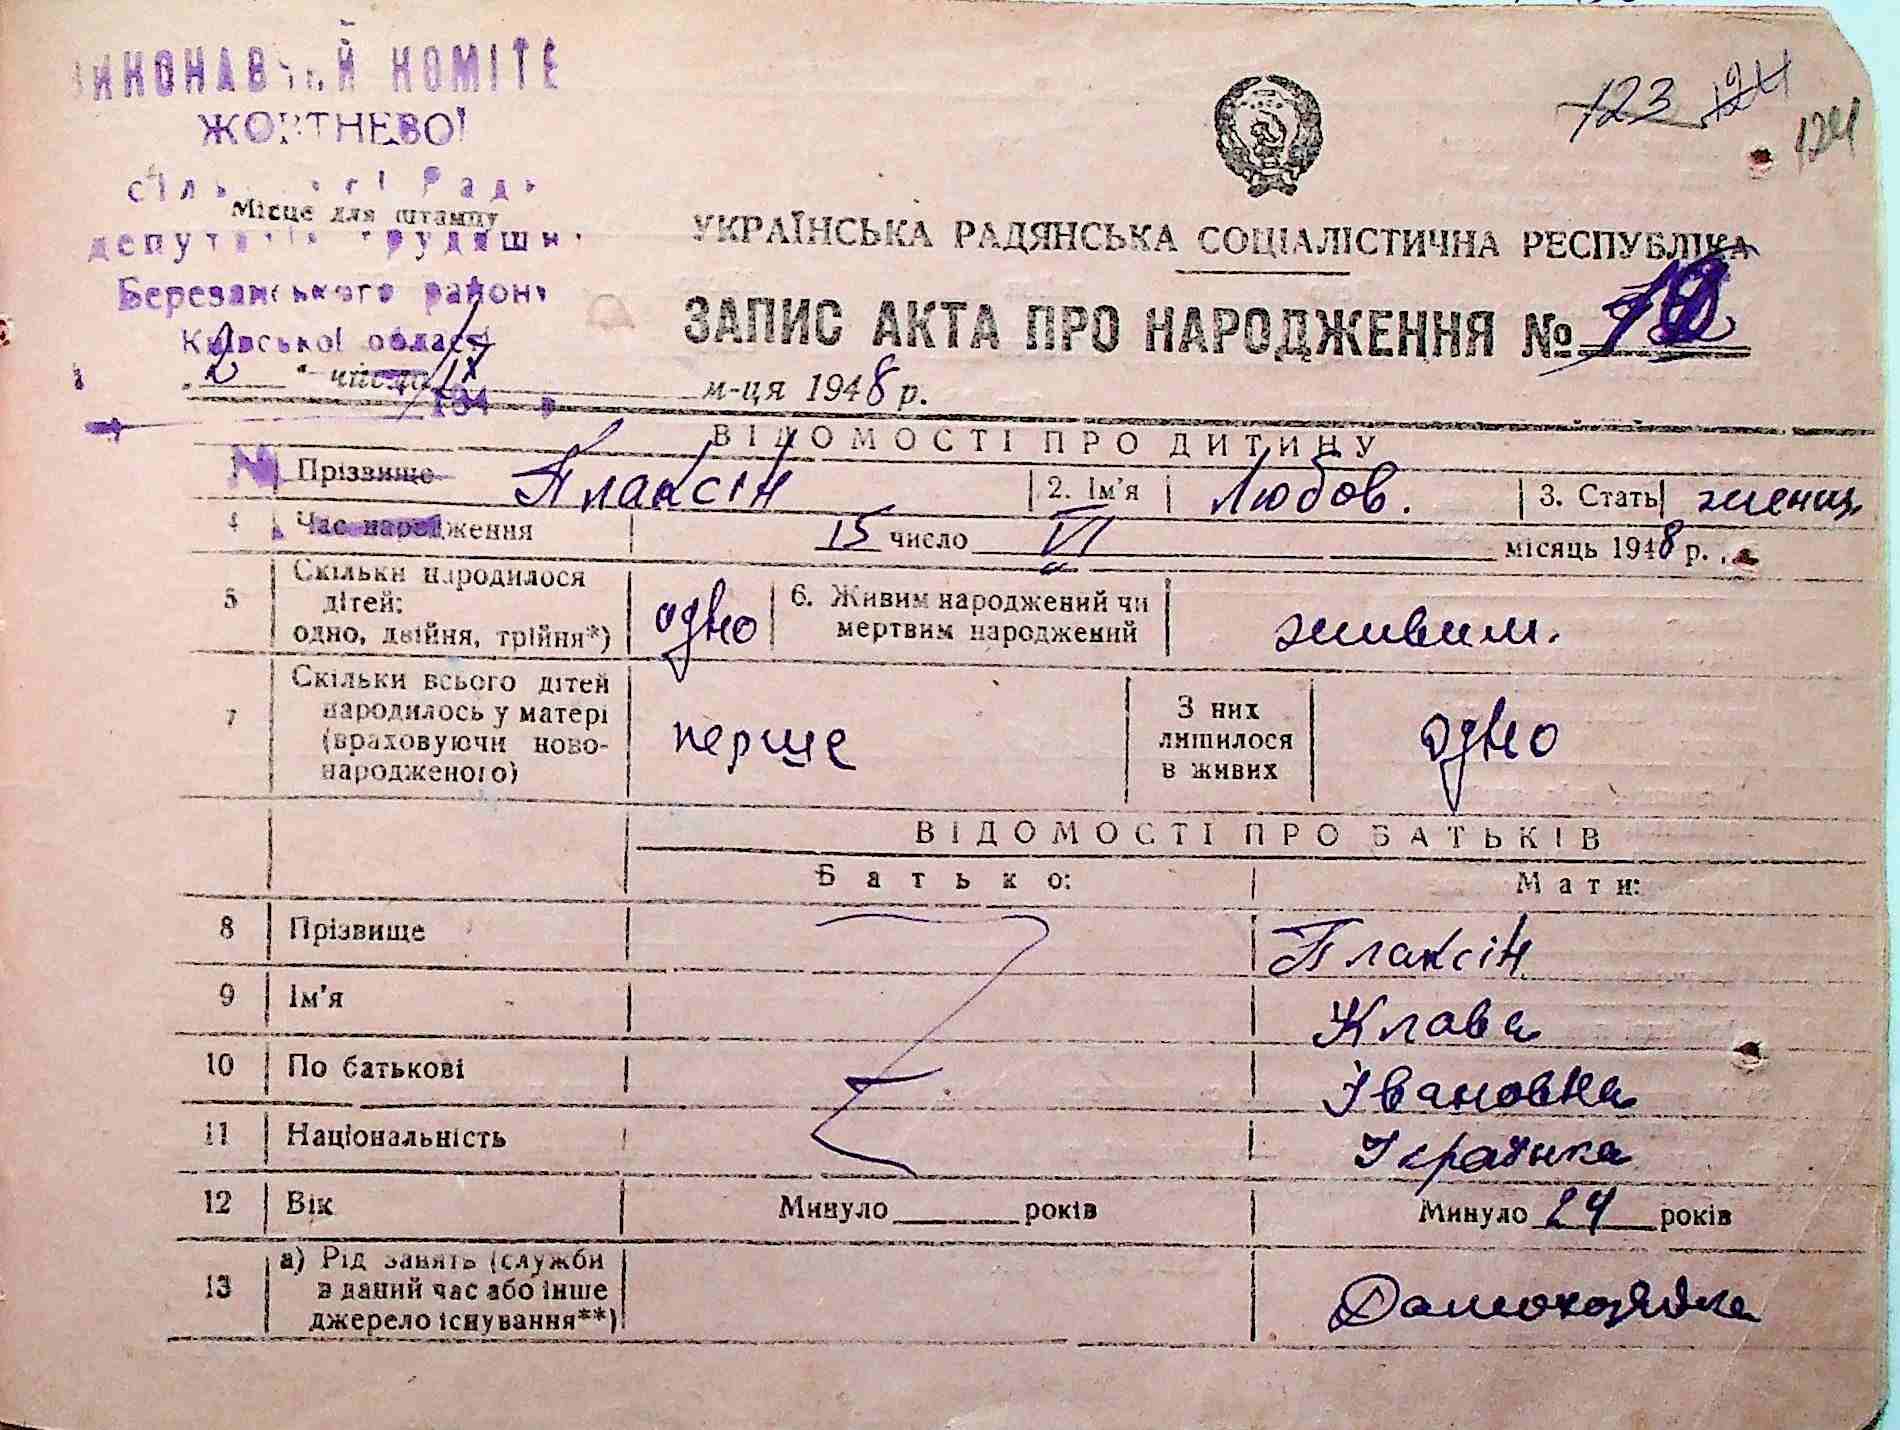 ВИКОНАВЧИЙ КОМІТЕ
ЖОВТНЕВОЇ
сільської Рад
Місце для штампу
депутатів трудящи
Березанського району
Київської області
123 124
124
УКРАЇНСЬКА РАДЯНСЬКА СОЦІАЛІСТИЧНА РЕСПУБЛІКА
ЗАПИС АКТА ПРО НАРОДЖЕННЯ №
„2“ числа IX м-ця 1948 р.
194 р
ВІДОМОСТІ ПРО ДИТИНУ
Прізвище Плаксін 2. Ім'я Любов. 3. Стать женщ.
4 Час народження 15 число VI місяць 1948 р.
5 Скільки народилося дітей: одно, двійня, трійня*) одно 6. Живим народжений чи мертвим народжений живим.
7 Скільки всього дітей народилось у матері (враховуючи новонародженого) перше З них лишилося в живих одно
ВІДОМОСТІ ПРО БАТЬКІВ
Батько: Мати:
8 Прізвище Плаксін
9 Ім'я Клава
10 По батькові Івановна
11 Національність Українка
12 Вік Минуло років Минуло 24 років
13 а) Рід занять (служби в даний час або інше джерело існування**) Домохозяйка